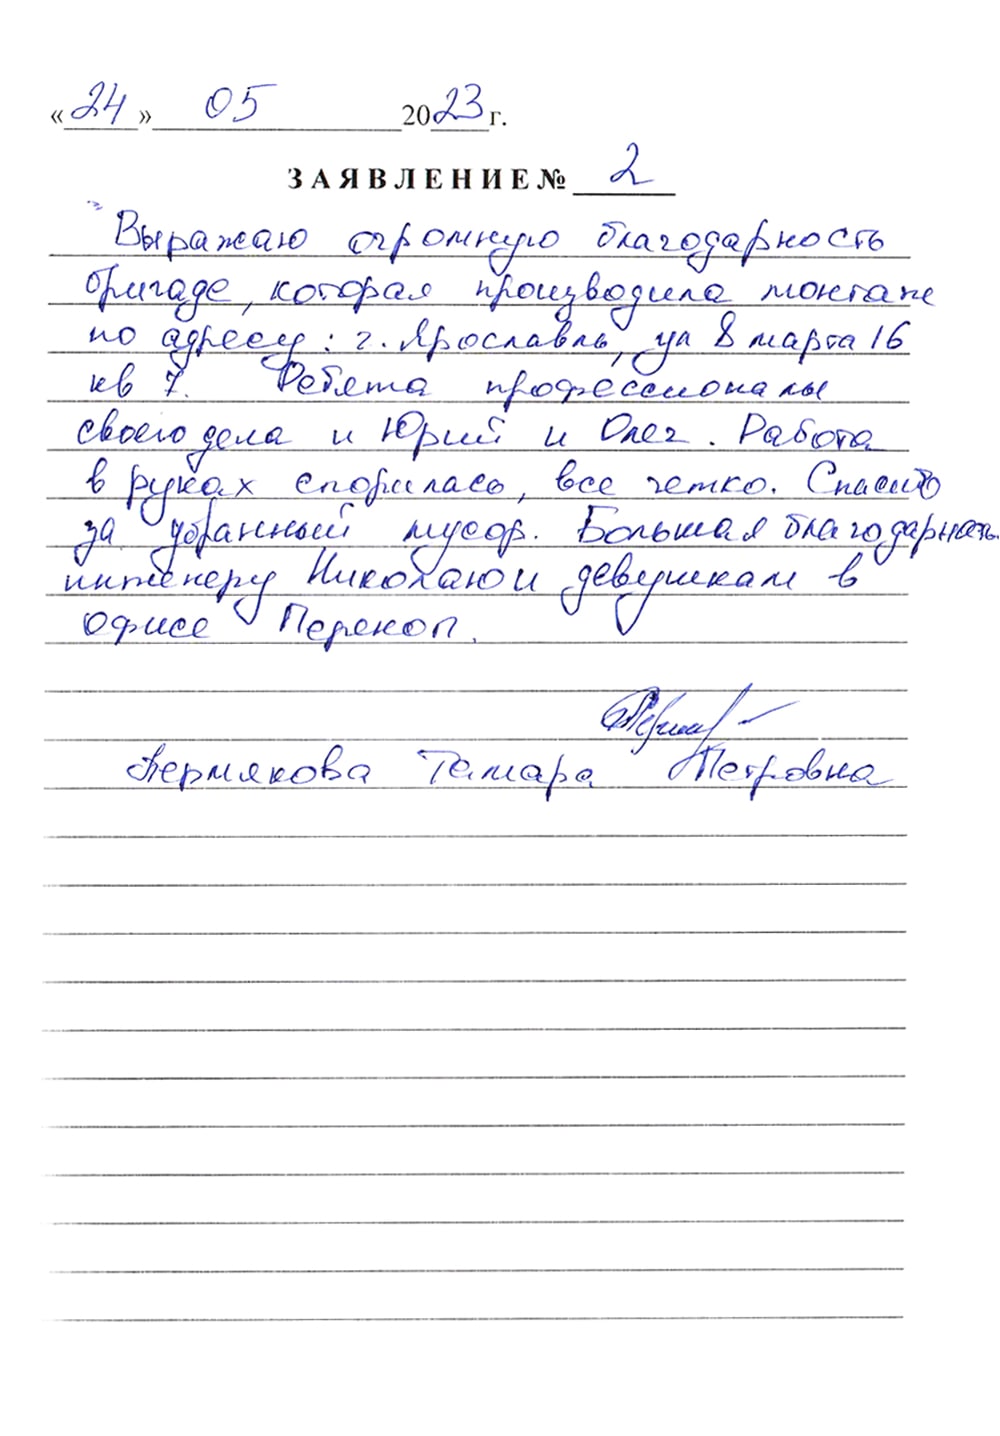 «24» 05 2023 г.
ЗАЯВЛЕНИЕ № 2
Выражаю огромную благодарность
бригаде, которая производила монтаж
по адресу: г. Ярославль, ул 8 марта 16
кв 7. Ребята профессионалы
своего дела и Юрий и Олег. Работа
в руках спорилась, все четко. Спасибо
за убранный мусор. Большая благодарность
инженеру Николаю и девушкам в
офисе Перекоп.
Пермякова Тамара Петровна